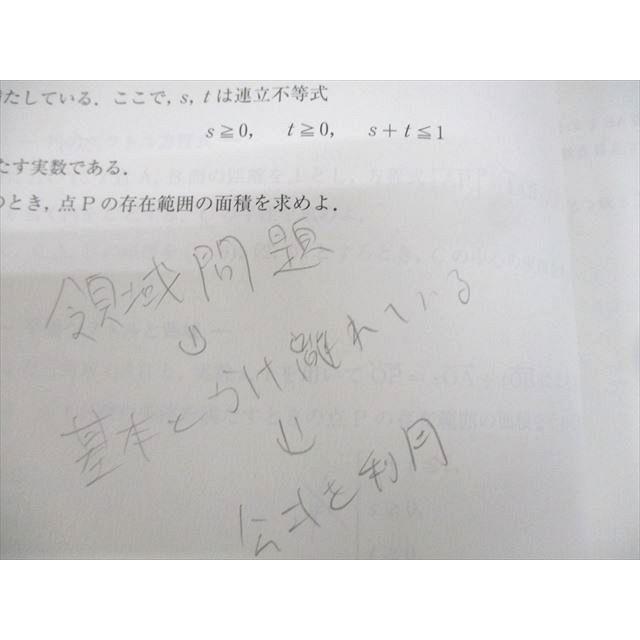 たしている．ここで，s，tは連立不等式
s≧0，　t≧0，　s+t≦1
たす実数である．
のとき，点Pの存在範囲の面積を求めよ．
領域問題
↓
基本とかけ離れている
↓
公式を利用